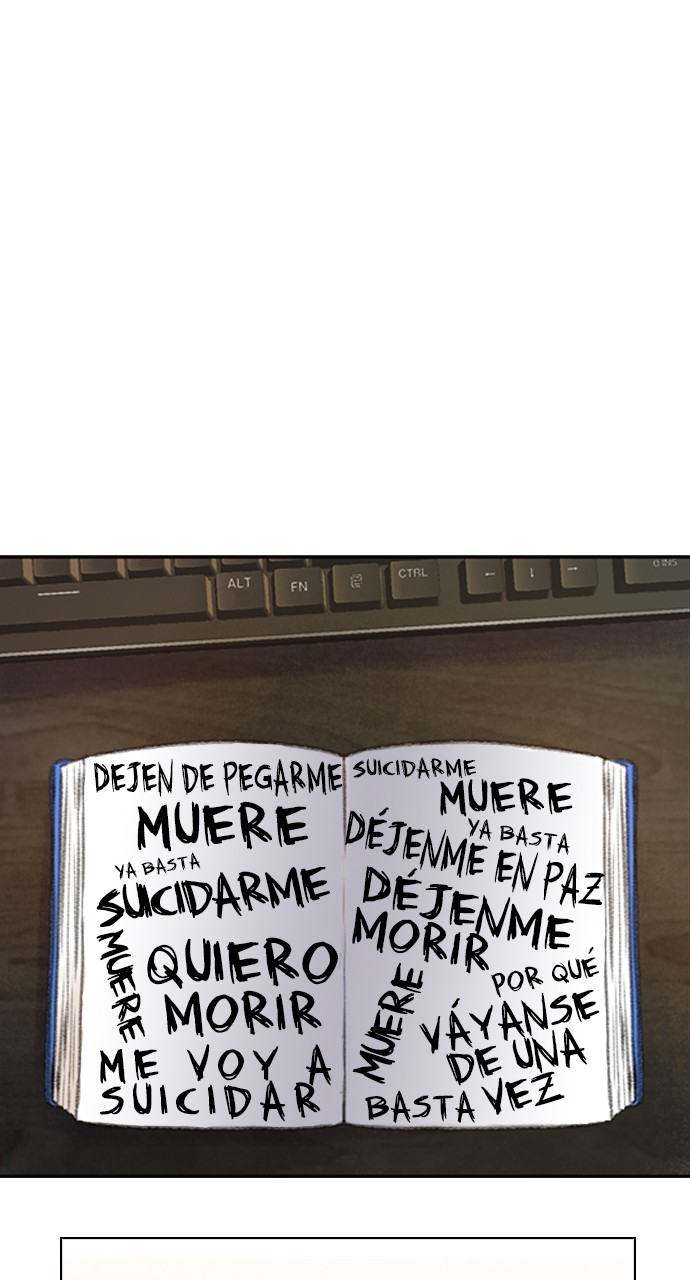 ALT
FN
CTRL
←
↓
→
0 INS
DEJEN DE PEGARME
MUERE
YA BASTA
SUICIDARME
MUERE
QUIERO
MORIR
ME VOY A
SUICIDAR
SUICIDARME
MUERE
YA BASTA
DÉJENME EN PAZ
DÉJENME
MORIR
POR QUÉ
MUERE
VÁYANSE
DE UNA
VEZ
BASTA